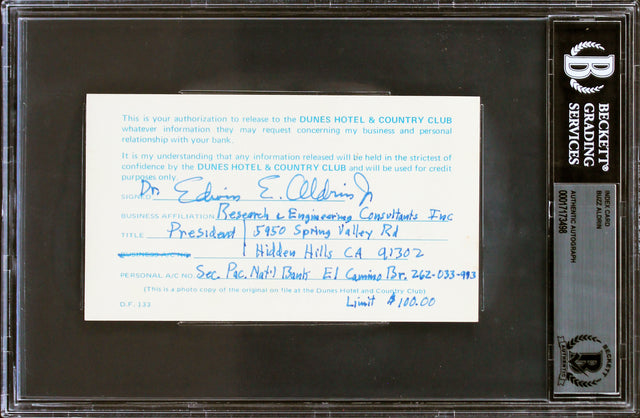 This is your authorization to release to the DUNES HOTEL & COUNTRY CLUB
whatever information they may request concerning my business and personal
relationship with your bank.
It is my understanding that any information released will be held in the strictest of
confidence by the DUNES HOTEL & COUNTRY CLUB and will be used for credit
purposes only.
SIGNED Dr. Edwin E. Aldrin Jr
BUSINESS AFFILIATION Research & Engineering Consultants Inc
TITLE President 5950 Spring Valley Rd
Hidden Hills CA 91302
PERSONAL A/C NO. Sec. Pac. Nat'l Bank El Camino Br. 262-033-993
(This is a photo copy of the original on file at the Dunes Hotel and Country Club)
D.F. 133 Limit $100.00
BECKETT
GRADING
SERVICES
INDEX CARD
BUZZ ALDRIN
AUTHENTIC AUTOGRAPH
00017173498
BECKETT
AUTHENTICATED